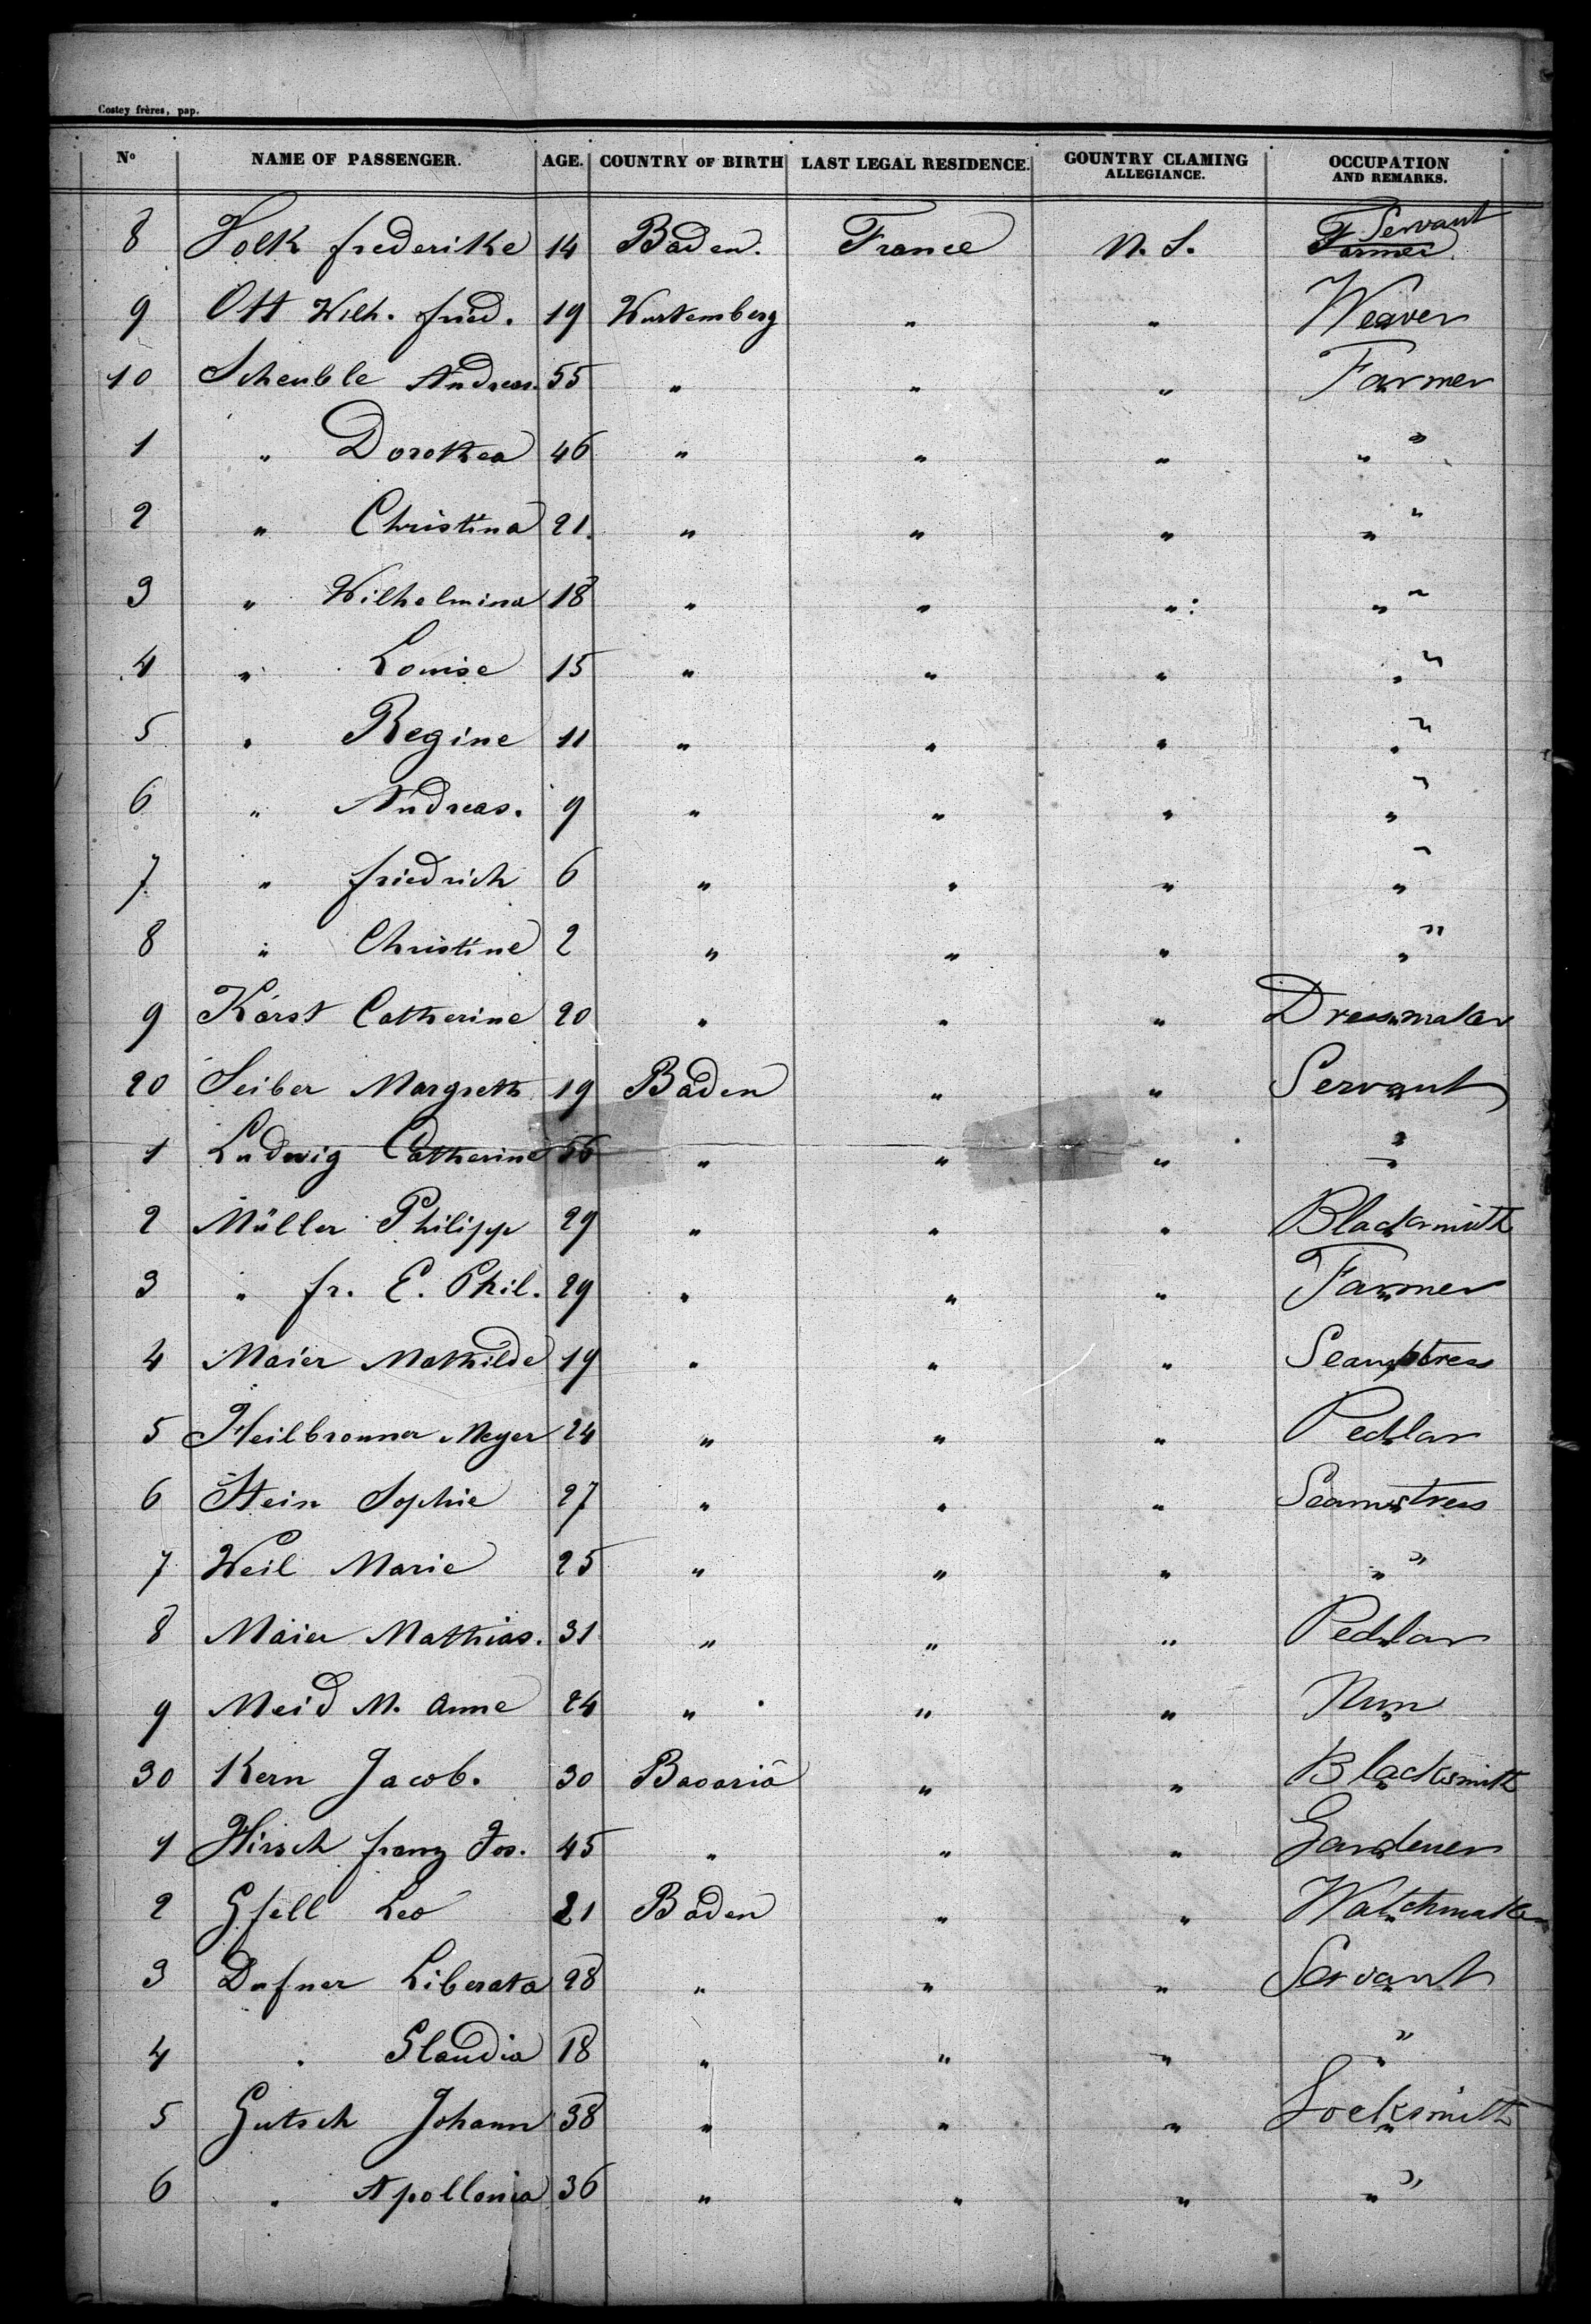 Costey frères, pap.
No NAME OF PASSENGER. AGE. COUNTRY OF BIRTH LAST LEGAL RESIDENCE. COUNTRY CLAMING ALLEGIANCE. OCCUPATION AND REMARKS.
8 Volk frederike 14 Baden. France N. S. Farmer Servant
9 Ott Wilh. fried. 19 Wurtemberg " " Weaver
10 Scheuble Andreas. 55 " " " Farmer
1 " Dorothea 46 " " " " "
2 " Christina 21. " " " " "
3 " Wilhelmina 18 " " ": " "
4 " Louise 15 " " " " "
5 " Regine 11 " " " " "
6 " Andreas. 9 " " " " "
7 " friedrich 6 " " " " "
8 " Christine 2 " " " " "
9 Karst Catherine 20 " " " Dressmaker
20 Seiber Margreth 19 Baden " " Servant
1 Ludwig Catherine 56 " " " " "
2 Müller Philipp 29 " " " Blacksmith
3 " fr. E. Phil. 29 " " " Farmer
4 Maier Mathilde 19 " " " Seamstress
5 Heilbronner Meyer 24 " " " Pedlar
6 Stein Sophie 27 " " " Seamstress
7 Weil Marie 25 " " " " "
8 Maier Mathias. 31 " " " Pedlar
9 Meid M. Anne 24 " " " Nun
30 Kern Jacob. 30 Bavaria " " Blacksmith
1 Hirsch franz Jos. 45 " " " Gardener
2 Gfell Leo 21 Baden " " Watchmaker
3 Dufner Liberata 28 " " " Servant
4 " Claudia 18 " " " " "
5 Gutsch Johann 38 " " " Locksmith
6 " Apollonia 36 " " " " "